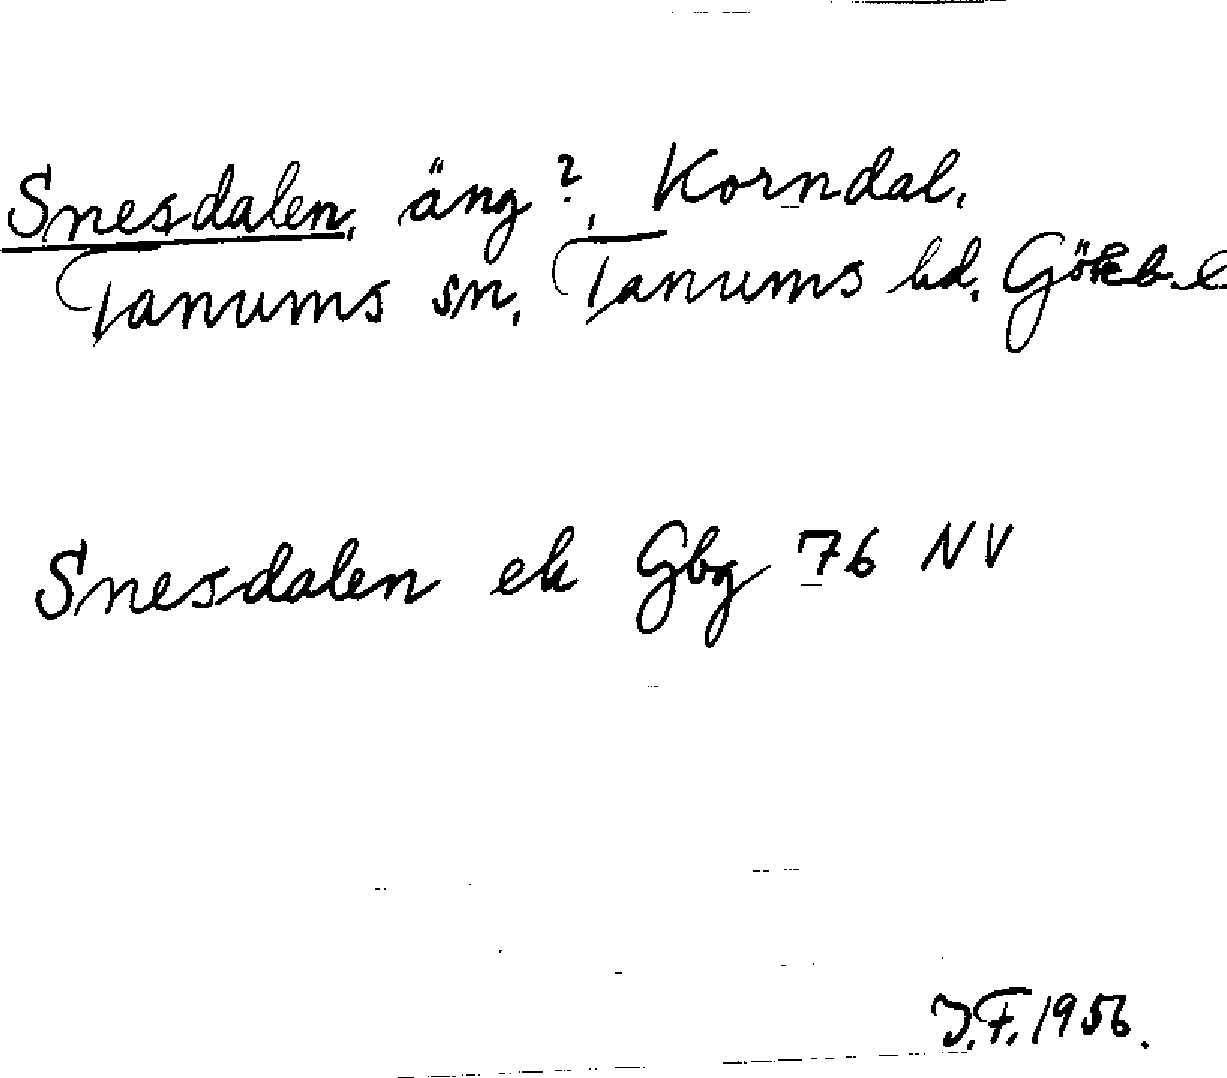 Snesdalen, äng?, Korndal.
Tanums sn, Tanums hd. Göteb. l
Snesdalen ek Gbg 76 NV
J.F. 1956.